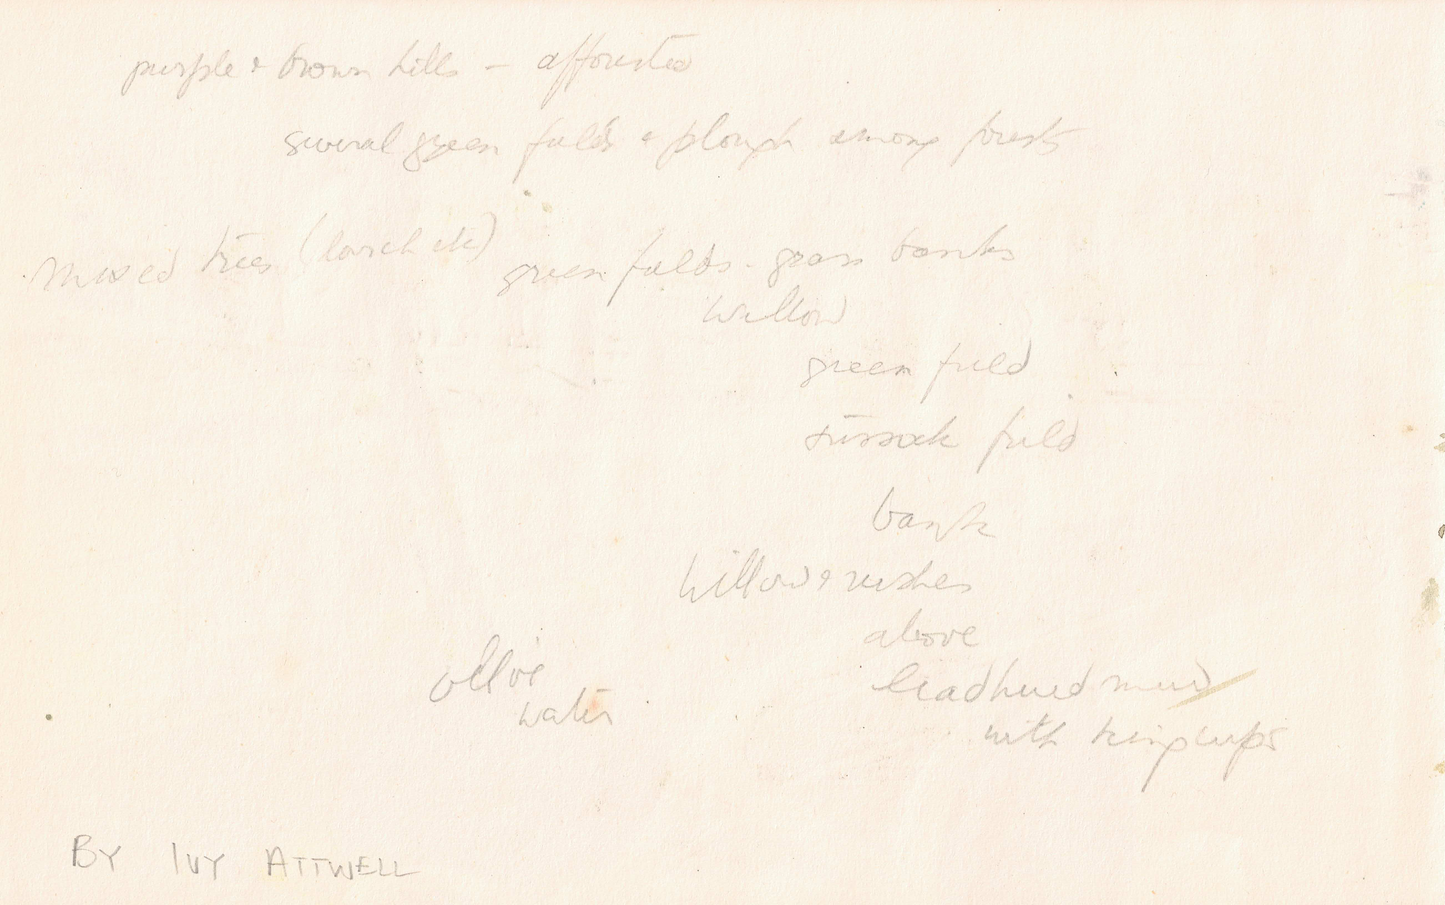 purple & brown hills – afforested
several green fields & plough among forests
Mixed trees (larch etc) green fields - grass banks
willow
green field
tussock field
bank
willow & rushes
above
olive
water
leadhued mud
with kingcups
BY IVY ATTWELL